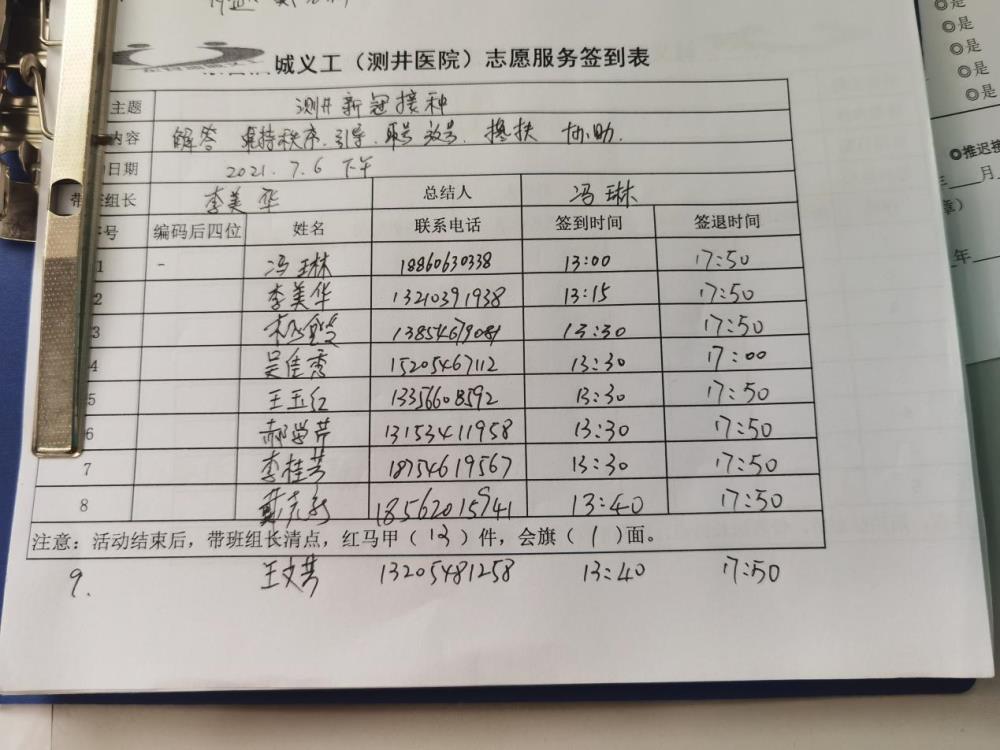 城义工（测井医院）志愿服务签到表
主题 测井新冠接种
内容 解答 维持秩序、引导、取号 放号、搀扶 协助.
日期 2021.7.6 下午
带班组长 李美华 总结人 冯琳
号 编码后四位 姓名 联系电话 签到时间 签退时间
1 - 冯琳 18860630338 13:00 17:50
2 李美华 13210391938 13:15 17:50
3 13854679081 13:30 17:50
4 吴佳秀 15205467112 13:30 17:00
5 王玉红 13356608592 13:30 17:50
6 郝学芹 13153411958 13:30 17:50
7 李桂芳 18754619567 13:30 17:50
8 18562015941 13:40 17:50
注意：活动结束后，带班组长清点，红马甲（13）件，会旗（1）面。
9. 王文芳 13205481258 13:40 17:50
◎是
◎是
◎是
◎是
◎是
◎推迟接
年 月
章）
年